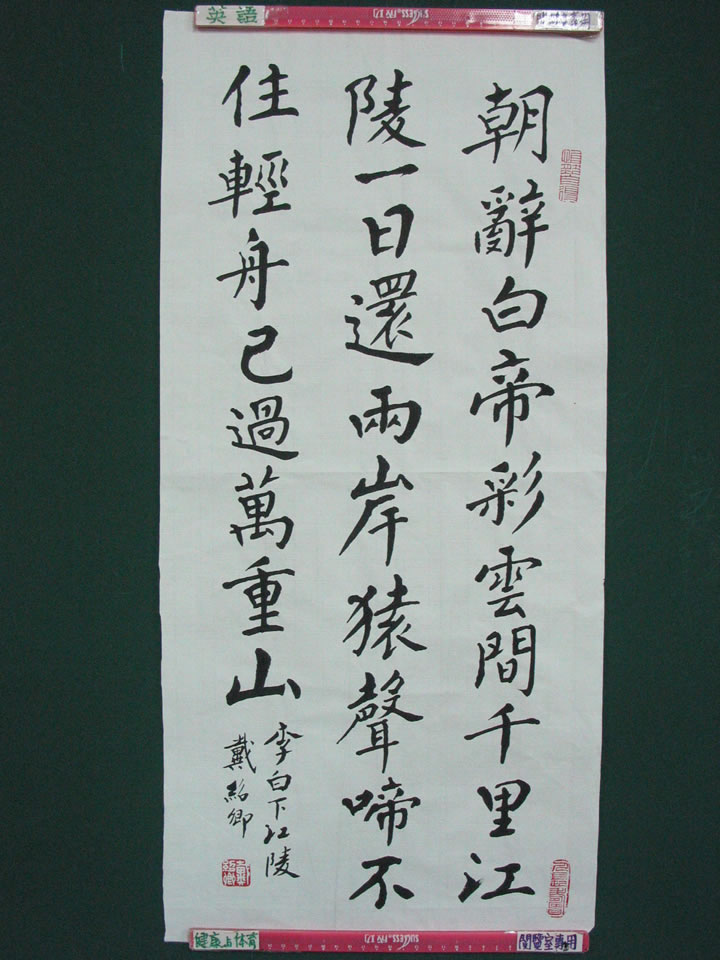 英語
SUCCESS
朝辭白帝彩雲間千里江
陵一日還兩岸猿聲啼不
住輕舟已過萬重山
李白下江陵
戴紹卿
健康与体育
SUCCESS
閱覽室專用